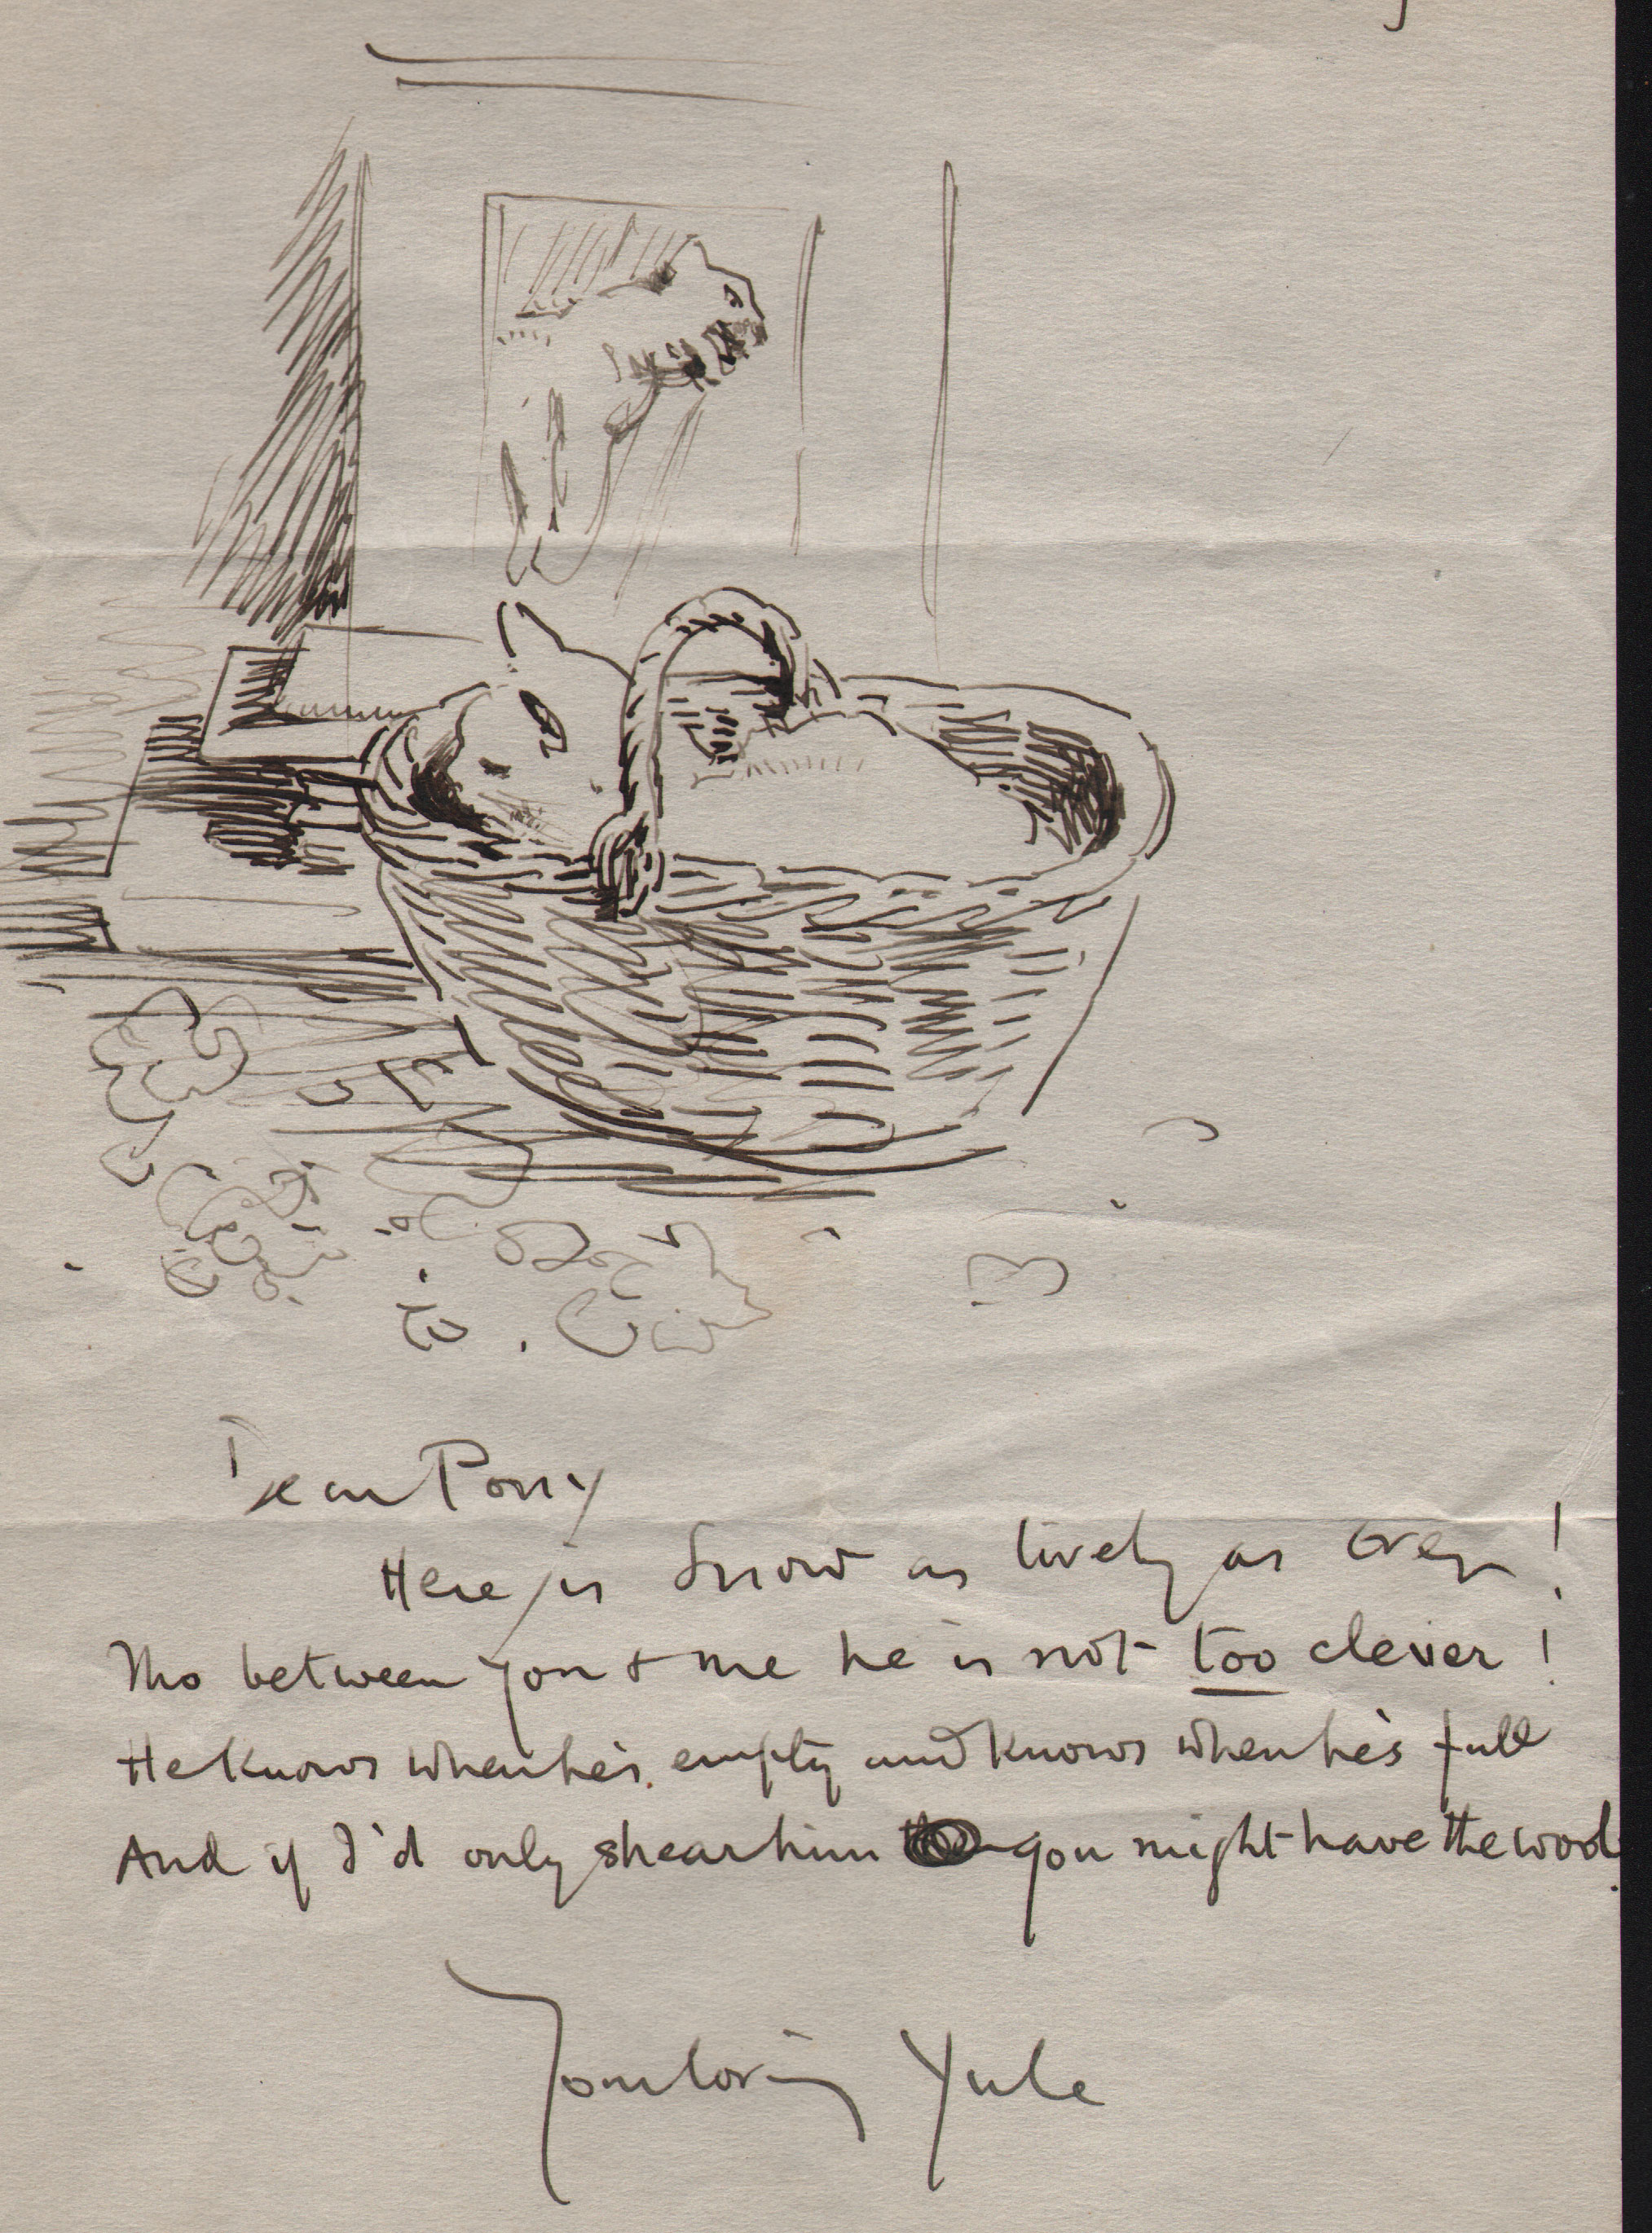 Dear Pony
Here is Snow as lively as ever!
Tho between you + me he is not too clever!
He knows when he's empty and knows when he's full
And if I'd only shear him you might have the wool.
Your loving Yule